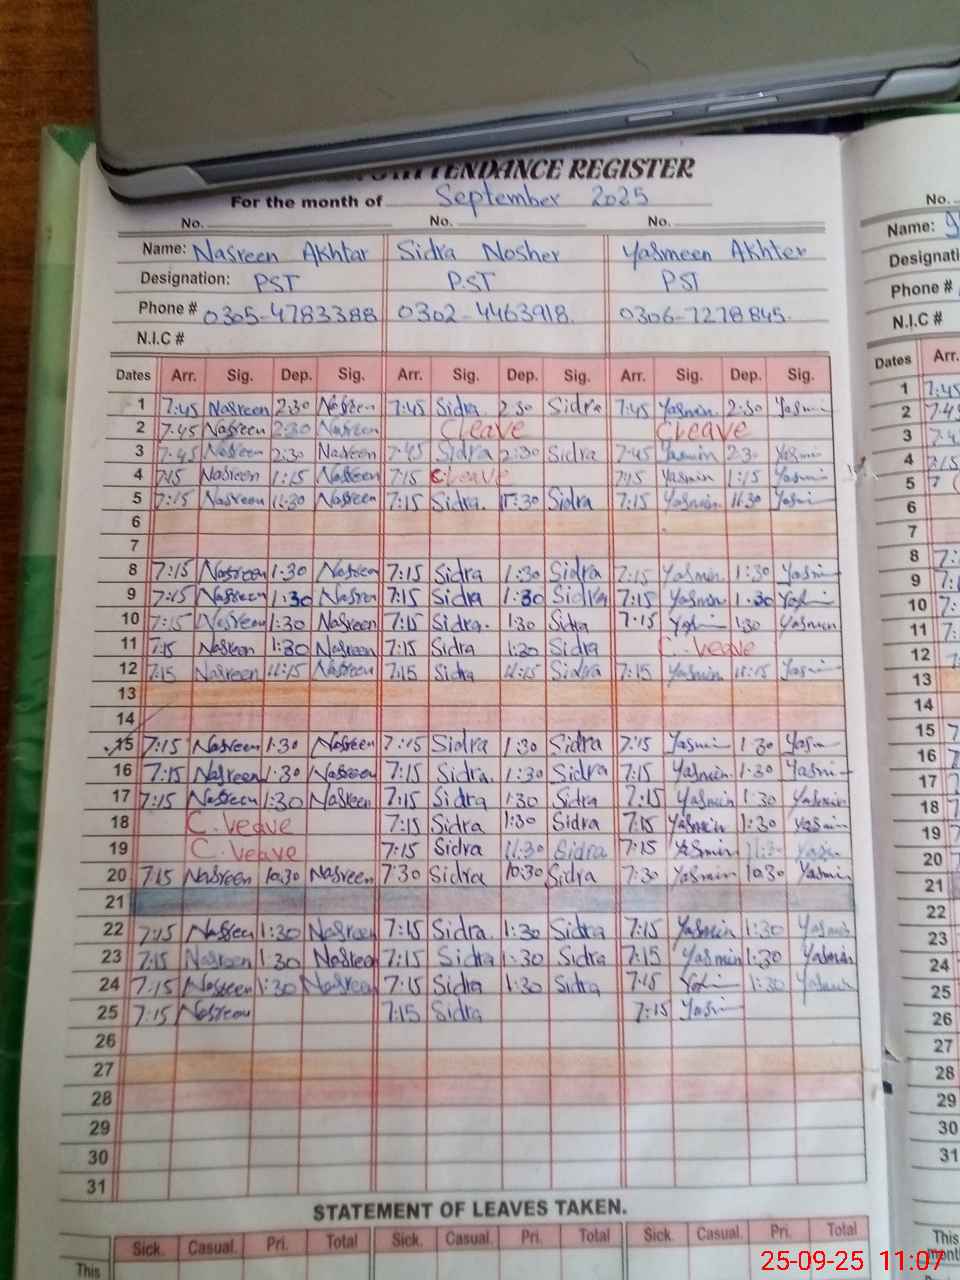 ATTENDANCE REGISTER
For the month of September 2025
No. No. No.
Name: Nasreen Akhtar Sidra Nosher Yasmeen Akhter
Designation: PST PST PST
Phone # 0305-4783388 0302-4463918. 0306-7278845.
N.I.C #
Dates Arr. Sig. Dep. Sig. Arr. Sig. Dep. Sig. Arr. Sig. Dep. Sig.
1 7:45 Nasreen 2:30 Nasreen 7:45 Sidra 2:30 Sidra 7:45 Yasmin 2:30 Yasmin
2 7:45 Nasreen 2:30 Nasreen Cleave Cleave
3 7:45 Nasreen 2:30 Nasreen 7:45 Sidra 2:30 Sidra 7:45 Yasmin 2:30 Yasmin
4 7:15 Nasreen 1:15 Nasreen 7:15 Cleave 7:15 Yasmin 1:15 Yasmin
5 7:15 Nasreen 11:30 Nasreen 7:15 Sidra. 11:30 Sidra 7:15 Yasmin 11:30 Yasmin
6
7
8 7:15 Nasreen 1:30 Nasreen 7:15 Sidra 1:30 Sidra 7:15 Yasmin 1:30 Yasmin
9 7:15 Nasreen 1:30 Nasren 7:15 Sidra 1:30 Sidra 7:15 Yasmin 1:30
10 7:15 Nasreen 1:30 Nasreen 7:15 Sidra. 1:30 Sidra 7:15 1:30 Yasmin
11 7:15 Nasreen 1:30 Nasreen 7:15 Sidra 1:30 Sidra C. Leave
12 7:15 Nasreen 11:15 Nasreen 7:15 Sidra 11:15 Sidra 7:15 Yasmin 11:15 Yasmin
13
14
15 7:15 Nasreen 1:30 Nasreen 7:15 Sidra 1:30 Sidra 7:15 Yasmin 1:30
16 7:15 Nasreen 1:30 Nasreen 7:15 Sidra. 1:30 Sidra 7:15 Yasmin 1:30 Yasmin
17 7:15 Nasreen 1:30 Nasreen 7:15 Sidra 1:30 Sidra 7:15 Yasmin 1:30 Yasmin
18 C. Leave 7:15 Sidra 1:30 Sidra 7:15 Yasmin 1:30 Yasmin
19 C. Leave 7:15 Sidra 11:30 Sidra 7:15 Yasmin 11:30
20 7:15 Nasreen 10:30 Nasreen 7:30 Sidra 10:30 Sidra 7:30 Yasmin 10:30 Yasmin
21
22 7:15 Nasreen 1:30 Nasreen 7:15 Sidra. 1:30 Sidra 7:15 Yasmin 1:30 Yasmin
23 7:15 Nasreen 1:30 Nasreen 7:15 Sidra 1:30 Sidra 7:15 Yasmin 1:30 Yasmin
24 7:15 Nasreen 1:30 Nasreen 7:15 Sidra 1:30 Sidra 7:15 1:30 Yasmin
25 7:15 Nasreen 7:15 Sidra 7:15 Yasmin
26
27
28
29
30
31
STATEMENT OF LEAVES TAKEN.
Sick. Casual. Pri. Total Sick. Casual. Pri. Total Sick. Casual. Pri. Total
This
No.
Name:
Phone #
N.I.C #
Dates Arr.
1 7:45
2
3
4 7:15
5 7
6
7
8
9
10
11
12
13
14
15
16
17
18
19
20
21
22
23
24
25
26
27
28
29
30
31
This
25-09-25 11:07